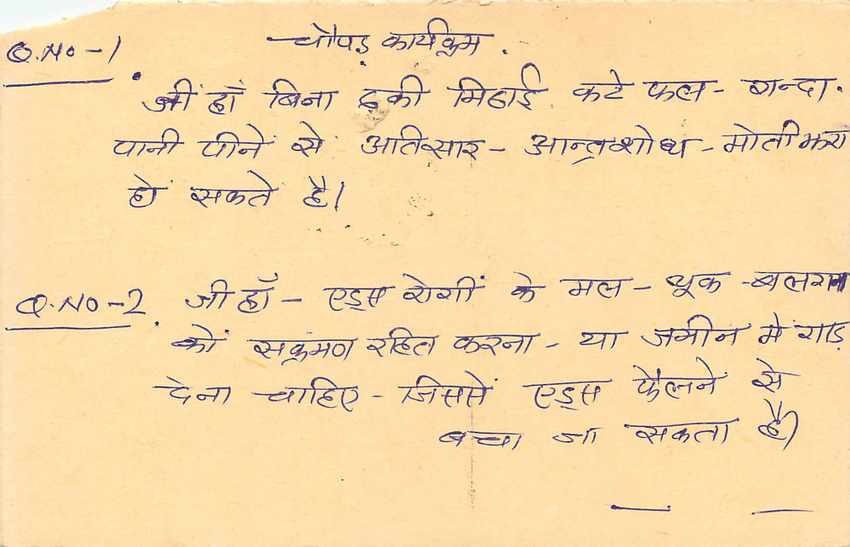 चौपड़ कार्यक्रम .
Q.No-1
जी हाँ बिना ढकी मिठाई कटे फल - गन्दा.
पानी पीने से अतिसार - आन्त्रशोथ - मोतीझरा
हो सकते है।
Q.No-2. जी हाँ - एड्स रोगीं के मल - थूक - बलगम
कों सक्रमण रहित करना - या जमीन मे गाड़
देना चाहिए - जिससे एड्स फैलने से
बचा जा सकता है।